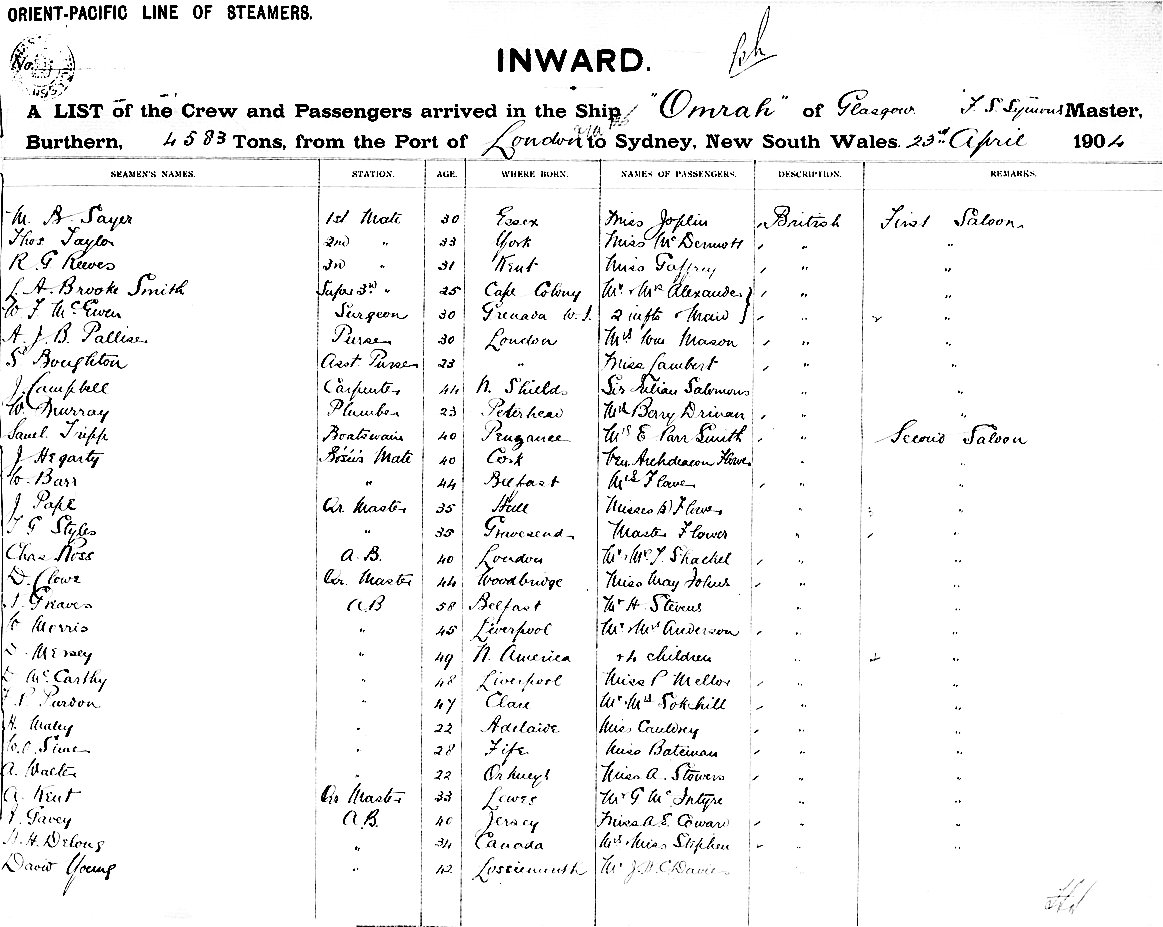 ORIENT-PACIFIC LINE OF STEAMERS.
No.
INWARD.
A LIST of the Crew and Passengers arrived in the Ship "Omrah" of Glasgow F. S. Symons Master,
Burthern, 4583 Tons, from the Port of London to Sydney, New South Wales. 23rd April 1904
SEAMEN'S NAMES. STATION. AGE. WHERE BORN. NAMES OF PASSENGERS. DESCRIPTION. REMARKS.
M. A. Sayer 1st Mate 30 Essex Miss Joplin British First Saloon
Thos Taylor 2nd " 33 York Miss McDermott " "
R G Reeves 3rd " 31 Kent Miss Gaffney " "
A. Brooke Smith 3rd " 25 Cape Colony Mr & Mrs Alexander } " "
W F McEwen Surgeon 30 Grenada W.I. 2 infts & Maid } " "
A. J. B. Palliser Purser 30 London Mrs Wm Mason " "
Boughton Asst Purser 23 " Miss Lambert " "
J Campbell Carpenter 44 N. Shields Sir Julian Salomons "
W. Murray Plumber 23 Peterhead Mrs Berry Drinan " "
Saml Tripp Boatswain 40 Penzance Mrs E Parr Smith " Second Saloon
J Hegarty Bosuns Mate 40 Cork Ven Archdeacon Flower " "
W. Barr " 44 Belfast Mrs Flower " "
J Pape Qr Master 35 Hull Misses Flower " "
T G Styles " 35 Gravesend Master Flower " "
Chas Ross A.B. 40 London Mr & Mrs J. Shackel " "
D. Clowe Qr. Master 44 Woodbridge Miss May Johns " "
J Greaves A.B 58 Belfast Mr H Stevens " "
W Morris " 45 Liverpool Mr & Mrs Anderson " "
Mersey " 49 N. America & 4 children " "
McCarthy " 48 Liverpool Miss P Mellor " "
P Purdon " 47 Clare Mr & Mrs Sokhill " "
H. Maley " 22 Adelaide Miss Cauldrey " "
W. Sime " 28 Fife Miss Bateman " "
A. Walter " 22 Orkneys Miss A. Stowers " "
A. Kent Qr Master 33 Lewes Mr G McIntyre " "
J Gavey A.B. 40 Jersey Miss A E. Coward " "
H. Delong " 34 Canada Mrs & Miss Stephen " "
David Young " 42 Lossiemouth Mr J H C Davies "